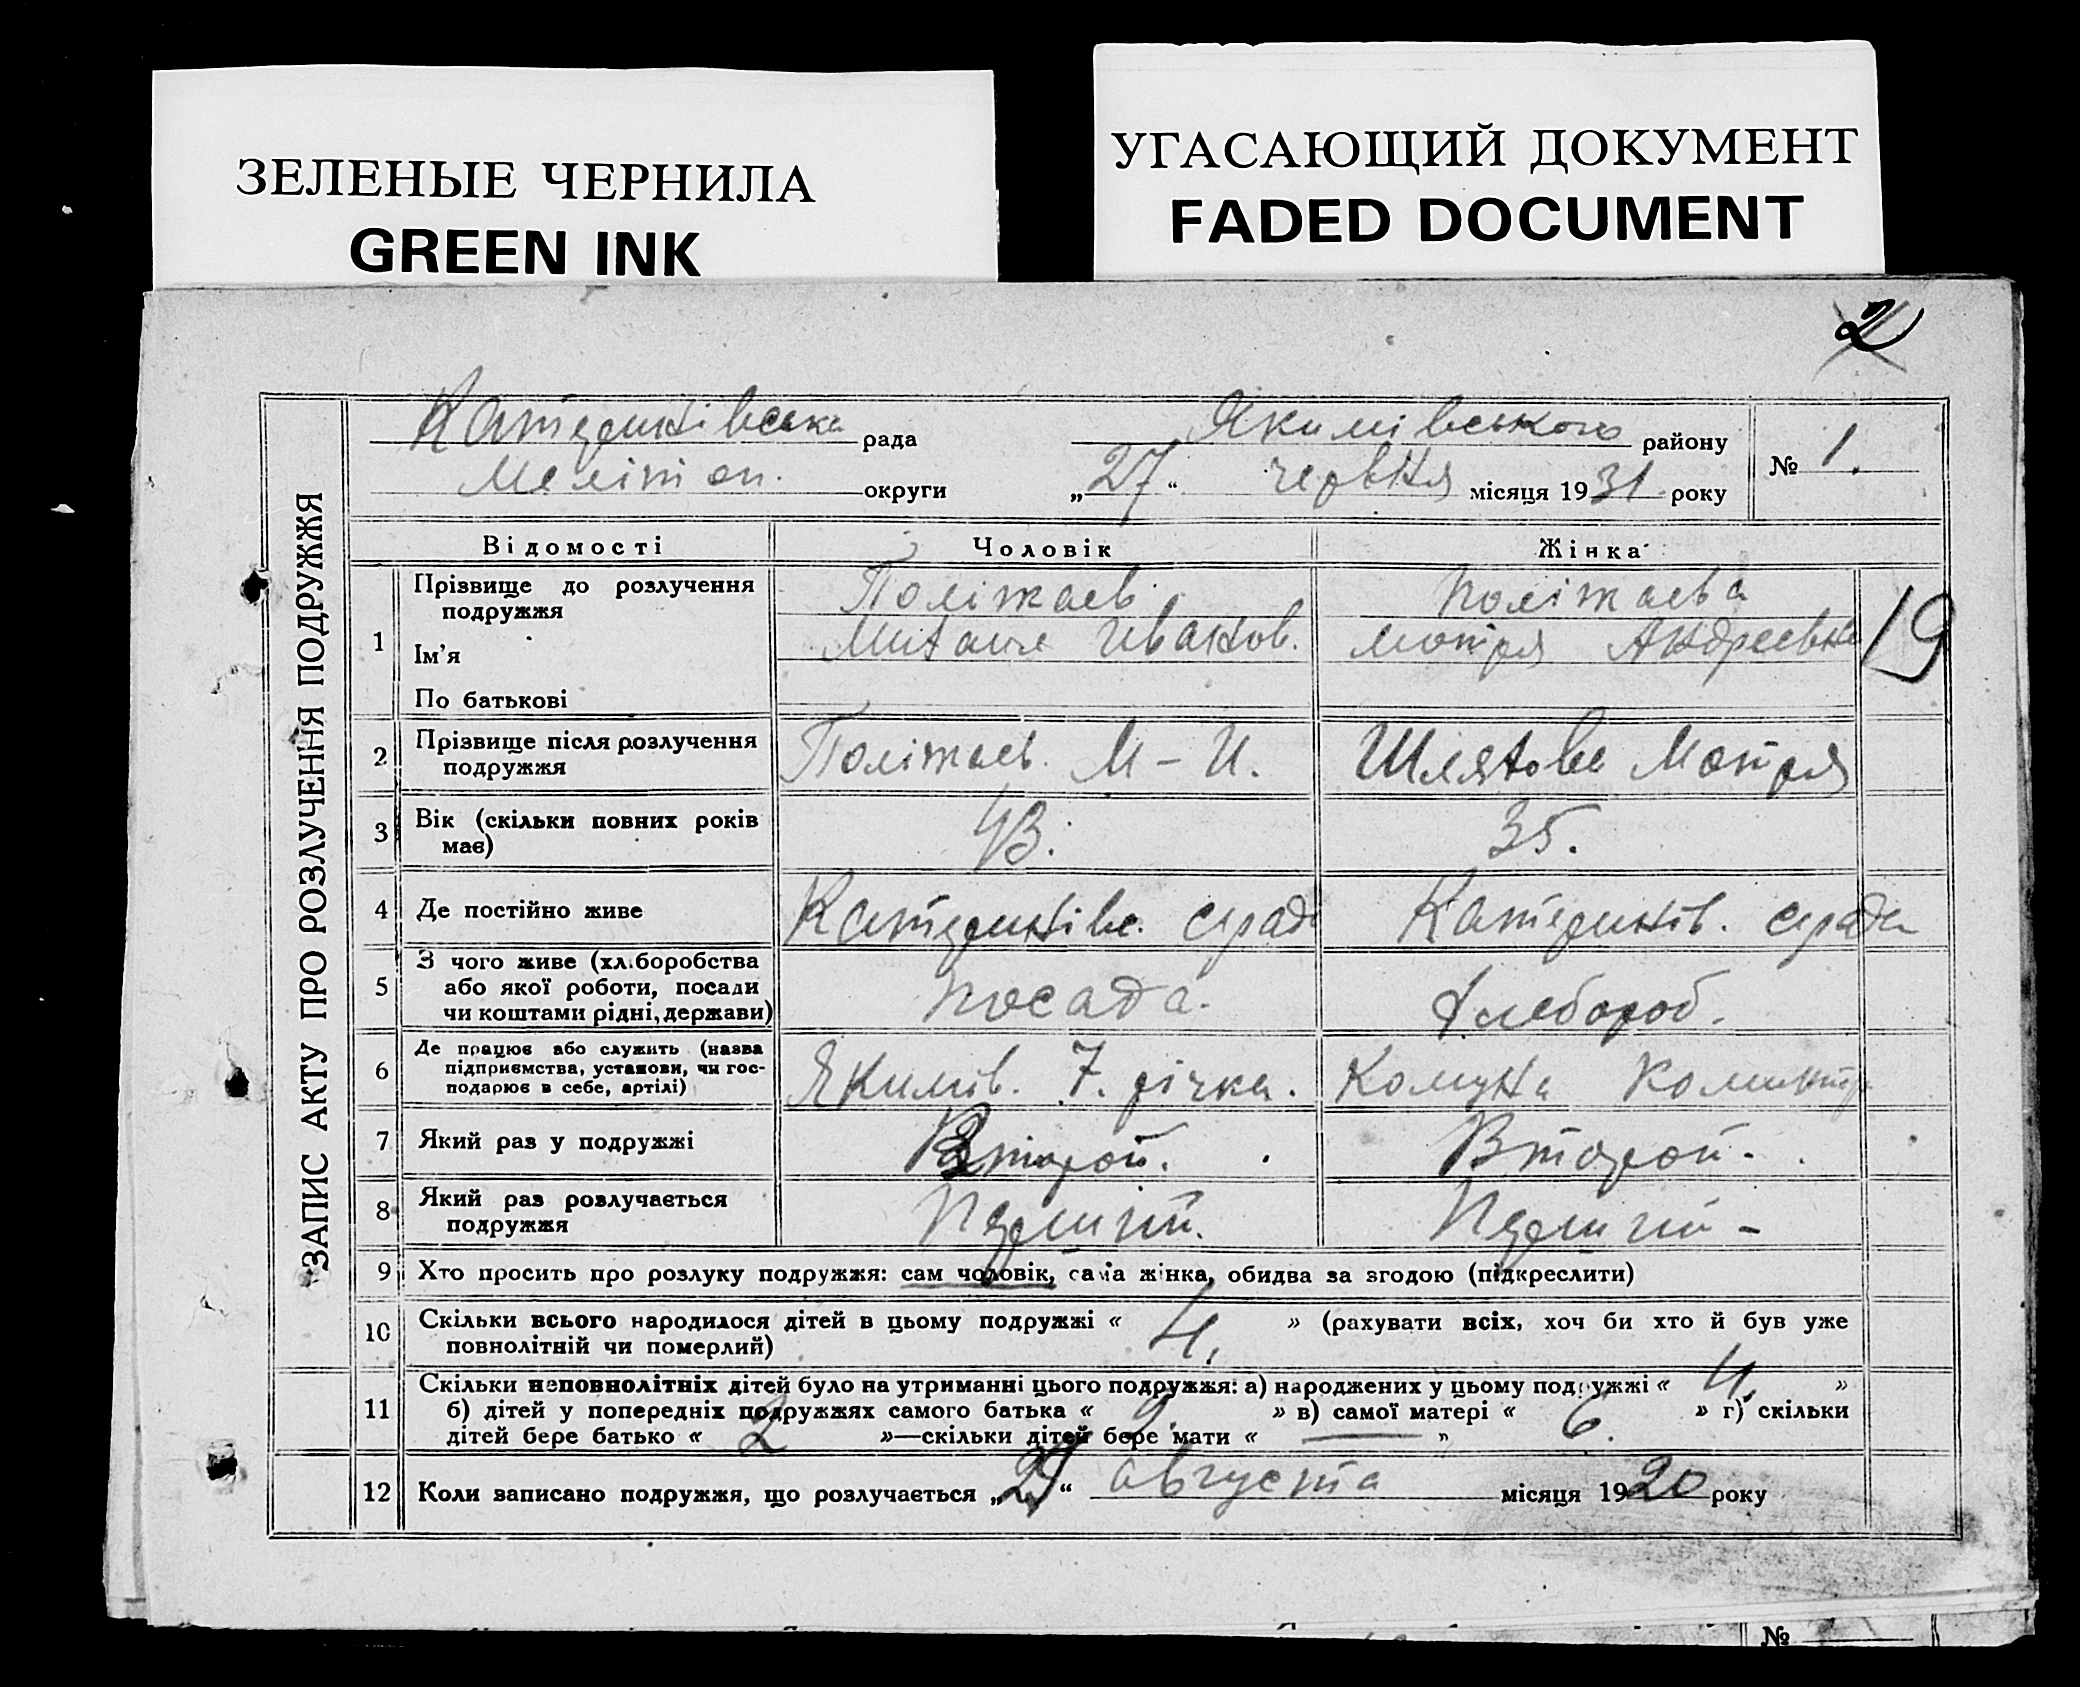 ЗЕЛЕНЫЕ ЧЕРНИЛА
GREEN INK
УГАСАЮЩИЙ ДОКУМЕНТ
FADED DOCUMENT
2
ЗАПИС АКТУ ПРО РОЗЛУЧЕННЯ ПОДРУЖЖЯ
Катеринівська рада Якимівського району № 1.
Меліто́п. округи „27“ червня місяця 1931 року
Відомості Чоловік Жінка
1 Прізвище до розлучення подружжя Поліжаев Поліжаева 19
Ім'я Иванов. Мотря Андреевна
По батькові
2 Прізвище після розлучення подружжя Поліжаев. М – И. Шляхова Мотря
3 Вік (скільки повних років має) 43. 35.
4 Де постійно живе Катеринівс. срада Катеринів. срада
5 З чого живе (хліборобства або якої роботи, посади чи коштами рідні, держави) посада. Хлебороб.
6 Де працює або служить (назва підприємства, установи, чи господарює в себе, артілі) Якимів. 7. річка. Комуна Коминтер
7 Який раз у подружжі Второй. Второй.
8 Який раз розлучається подружжя Перший. Перший –
9 Хто просить про розлуку подружжя: сам чоловік, сама жінка, обидва за згодою (підкреслити)
10 Скільки всього народилося дітей в цьому подружжі « 4. » (рахувати всіх, хоч би хто й був уже
повнолітній чи померлий)
11 Скільки неповнолітніх дітей було на утриманні цього подружжя: а) народжених у цьому подружжі « 4. »
б) дітей у попередніх подружжях самого батька « 2. » в) самої матері « 6. » г) скільки
дітей бере батько « 2 »—скільки дітей бере мати « — »
12 Коли записано подружжя, що розлучається „ “ августа місяця 1920 року
№